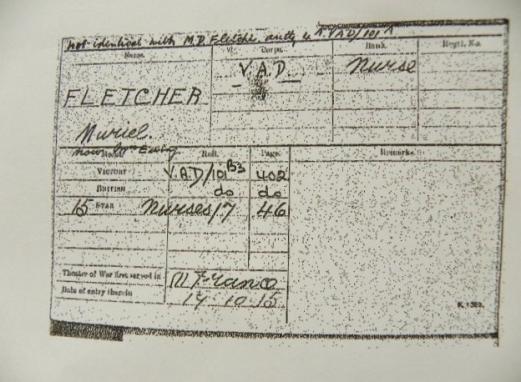 not identical with M.D. Fletcher entry in V.A.D/101
Name. Corps. Rank. Regtl. No.
V.A.D. Nurse
FLETCHER
Muriel.
now Mrs
Medal. Roll. Page. Remarks.
VICTORY V.A.D/101 B3 402
BRITISH do do
15 STAR Nurses/7 46
Theatre of War first served in France
Date of entry therein 10.15
K. 1380.